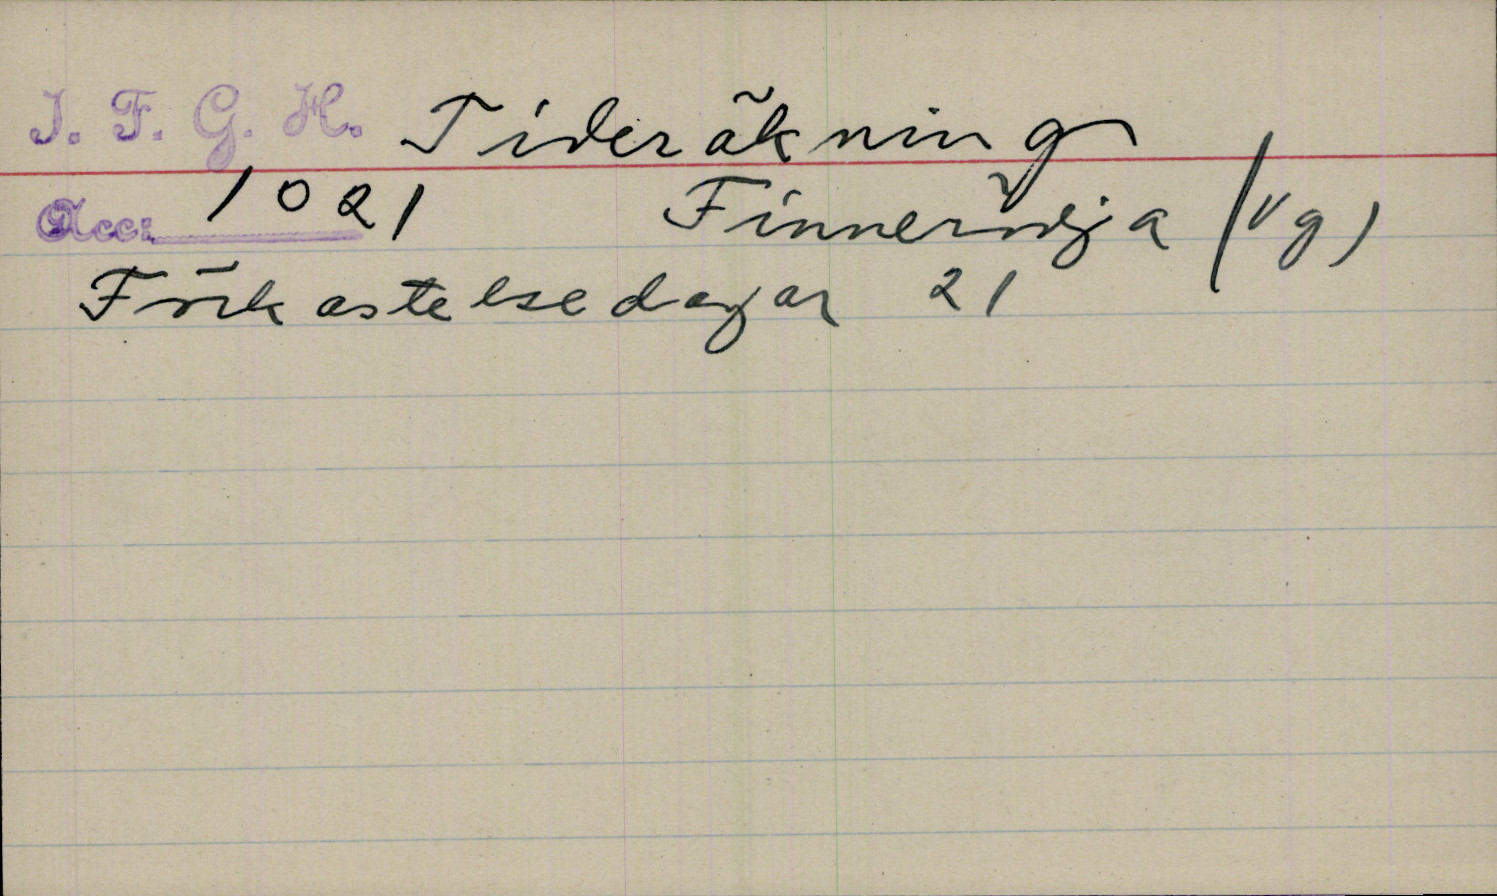 I. F. G. H. Tideräkning
Acc: 1021 Finnerödja (Vg)
Förkastelsedagar 21